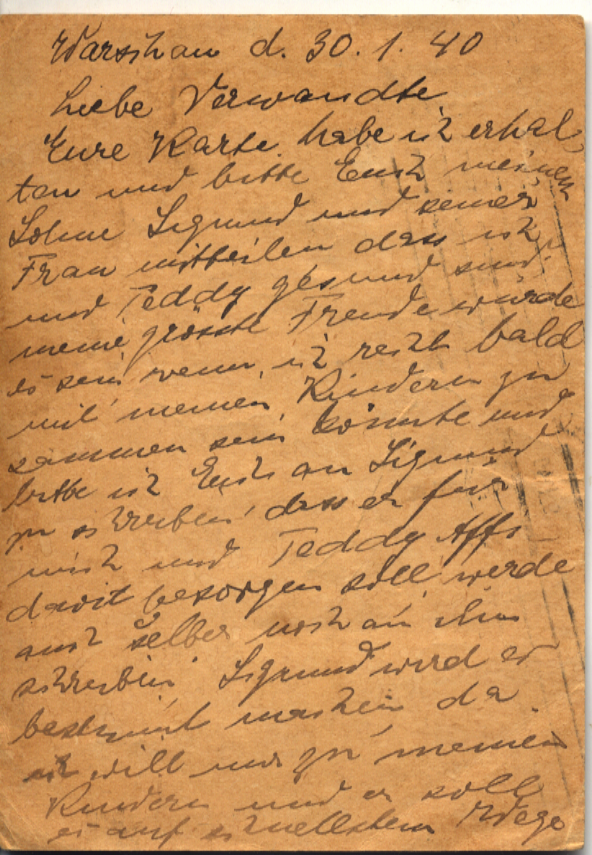 Warschau d. 30.1.40
Liebe Verwandte
Eure Karte habe ich erhal
ten und bitte Euch meinem
Sohne Sigmund und seiner
Frau mitteilen dass ich
und Teddy gesund sind.
meine grösste Freude würde
es sein wenn ich recht bald
mit meinen Kindern zu
sammen sein könnte und
bitte ich Euch an Sigmund
zu schreiben, dass er für
mich und Teddy Affi
davit besorgen soll, werde
auch selber noch an ihm
schreiben. Sigmund wird er
bestimmt machen da
ich will nur zu meinen
Kindern und er soll
es auf schnellstem Wege